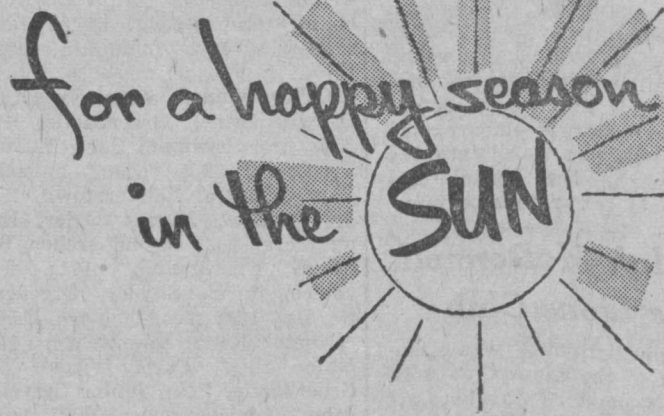 for a happy season
in the SUN